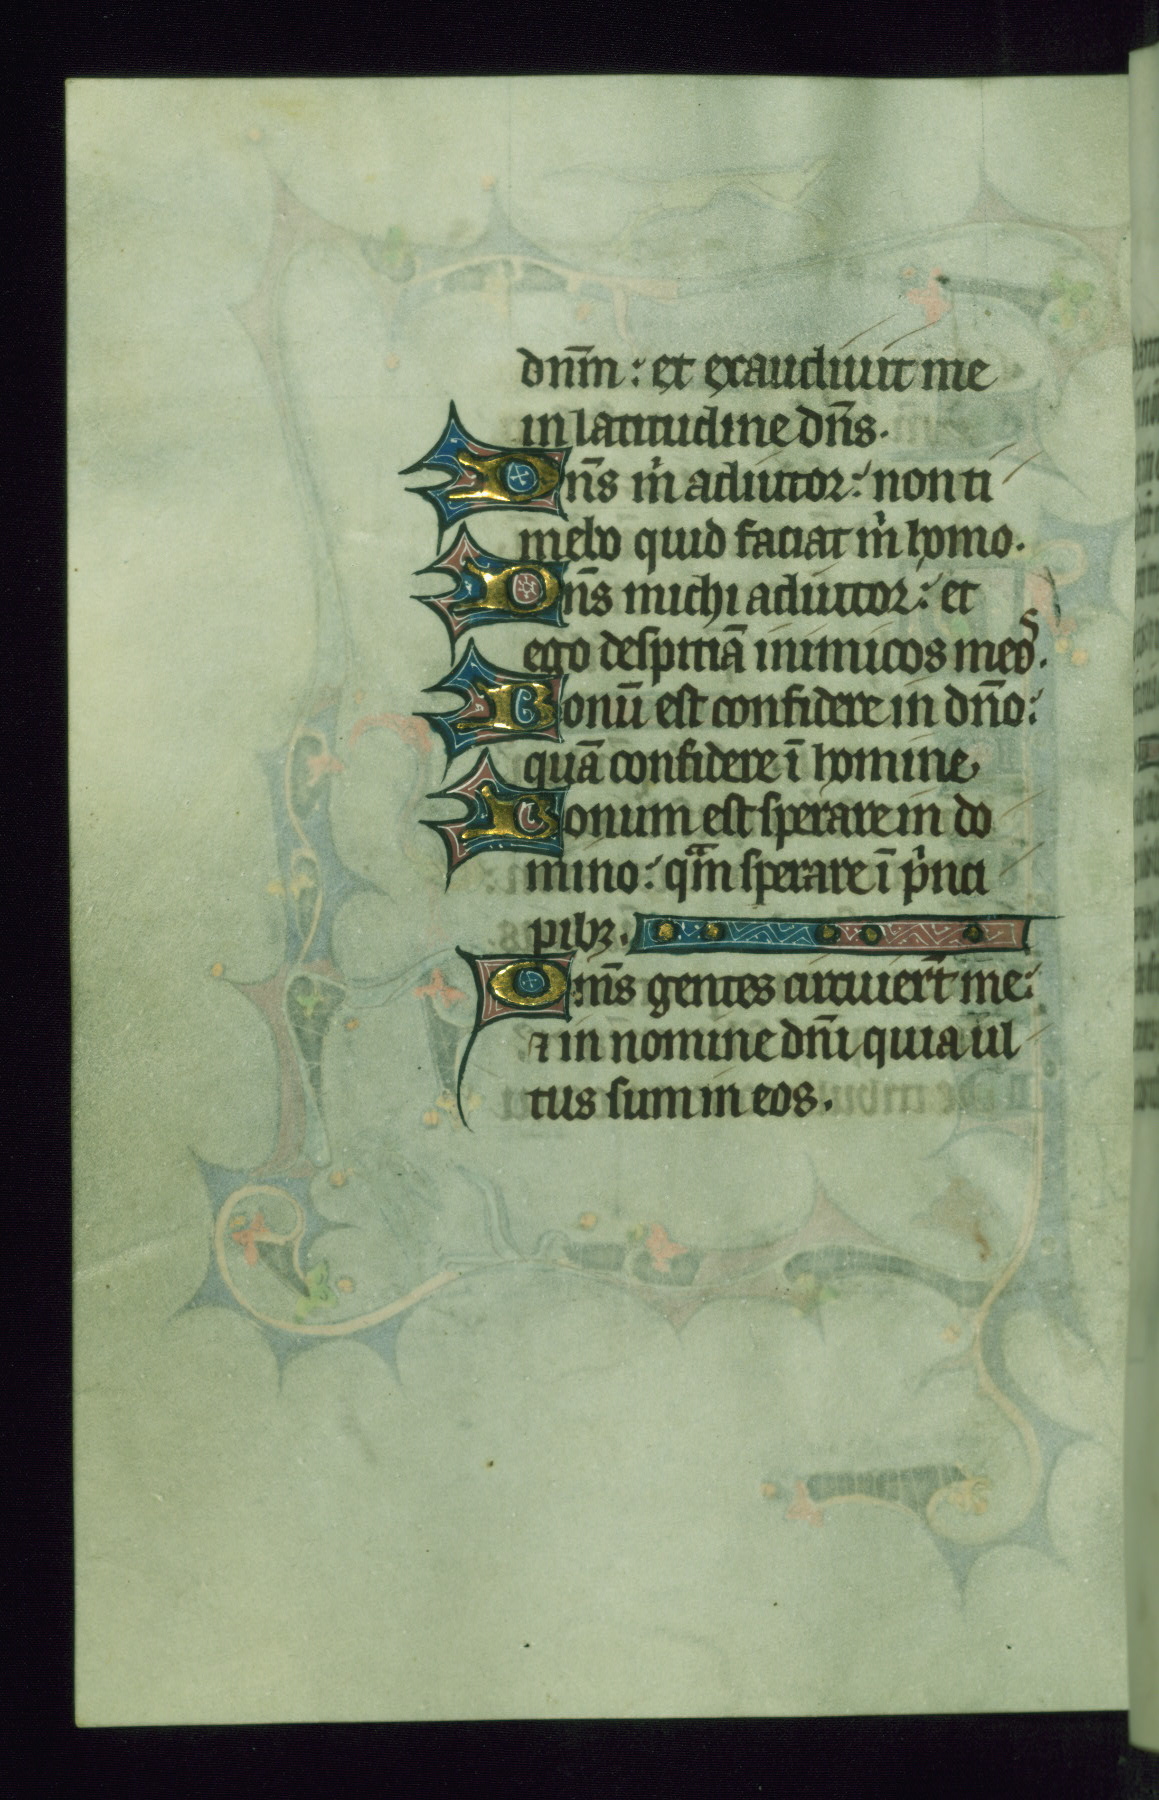 dn̄m: et exaudiuit me
in latitudine dn̄s.
Dn̄s m̉ adiutor: non ti
mebo quid faciat m̉ homo.
Dn̄s michi adiutor: et
ego despiciā inimicos meoˢ.
Bonū est confidere in dn̄o:
quā confidere ī homine
Bonum est sperare in do
mino: qᵃ̄m sperare ī p̉nci
pibꝫ.
Om̄s gentes circuier̄t me:
⁊ in nomine dn̄i quia ul
tus sum in eos.